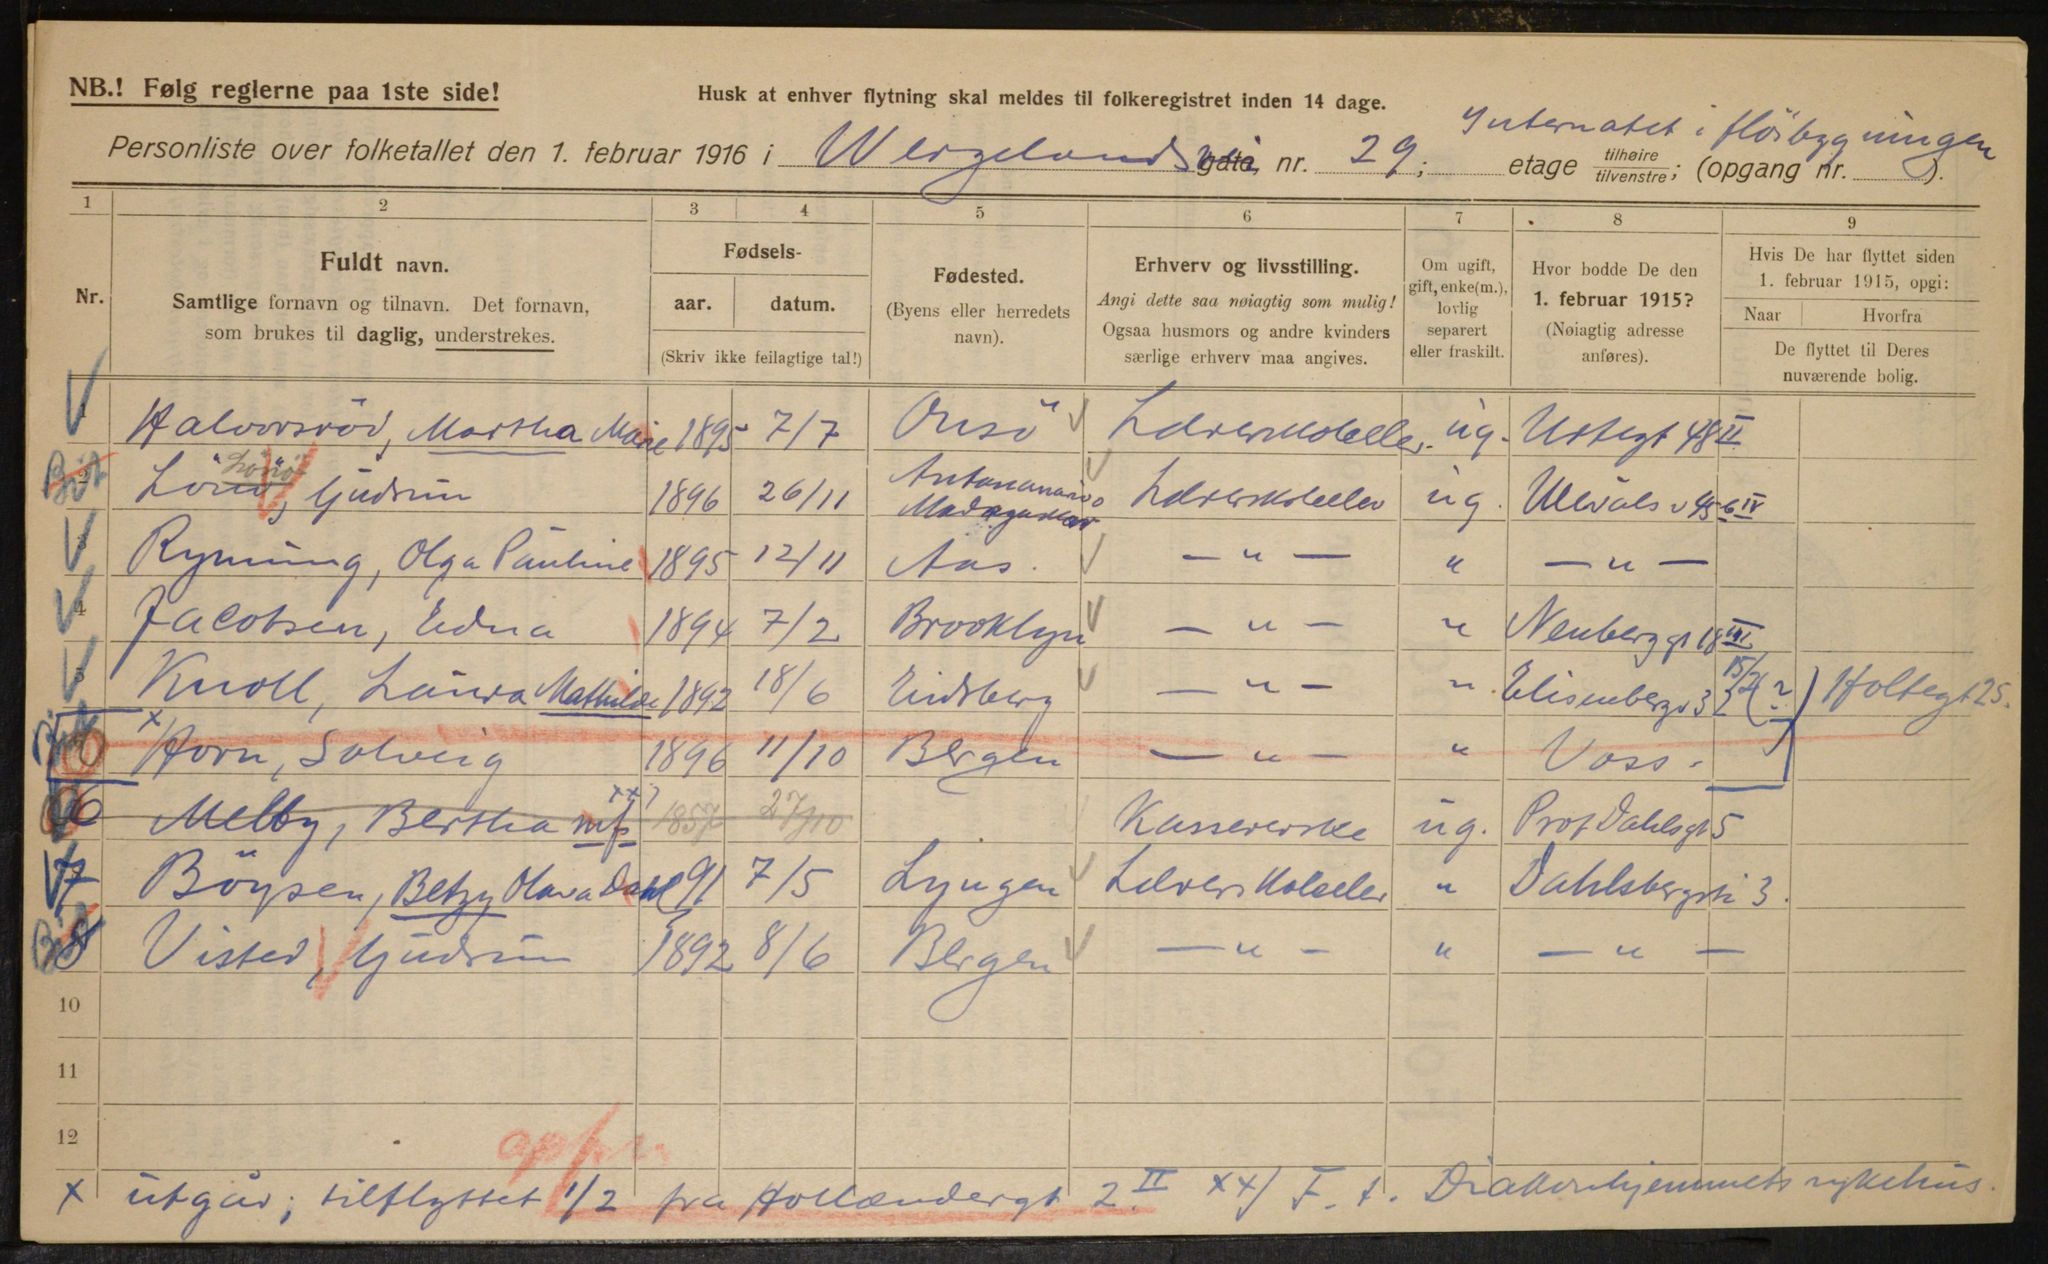 NB.! Følg reglerne paa 1ste side!
Husk at enhver flytning skal meldes til folkeregistret inden 14 dage.
Internatet i fløibygningen
Personliste over folketallet den 1. februar 1916 i Wergelandsvei gate nr. 29; etage tilhøire tilvenstre; (opgang nr. ).
1 2 3 4 5 6 7 8 9
Nr.
Fuldt navn.
Samtlige fornavn og tilnavn. Det fornavn, som brukes til daglig, understrekes.
Fødsels-
aar. datum.
(Skriv ikke feilagtige tal!)
Fødested.
(Byens eller herredets navn).
Erhverv og livsstilling.
Angi dette saa nøiagtig som mulig!
Ogsaa husmors og andre kvinders særlige erhverv maa angives.
Om ugift, gift, enke(m.), lovlig separert eller fraskilt.
Hvor bodde De den 1. februar 1915?
(Nøiagtig adresse anføres).
Hvis De har flyttet siden 1. februar 1915, opgi:
Naar Hvorfra
De flyttet til Deres nuværende bolig.
1 Halvorsröd, Martha Marie 1895 7/7 Onsö Lærerskoleelev ug. Ustegt 48 II
2 Gudrun 1896 26/11 Antananarivo Madagaskar Lærerskoleelev ug. Ulevåls v 45 IV
3 Rynning, Olga Pauline 1895 12/11 Aas. — " — " — " —
4 Jacobsen, Edna 1894 7/2 Brooklyn — " — " Neuberggt 18 III
5 Knoll, Laura Mathilde 1892 18/6 Eidsberg — " — " Elisenbergv 3 15/2 Holtegt 25.
x Horn, Solveig 1896 11/10 Bergen — " — " Voss.
6 Melby, Bertha xx) 1857 27/10 Kassererske ug. Prof Dahlsgt 5
7 Böysen, Betzy Olava Dahl 91 7/5 Lyngen Lærerskoleelev " Dahlsbergsti 3.
8 Visted, Gudrun 1892 8/6 Bergen — " — " — " —
10
11
12
x utgår; tilflyttet 1/2 fra Hollændergt 2. II xx) F. t. Diakonhjemmets sykehus.